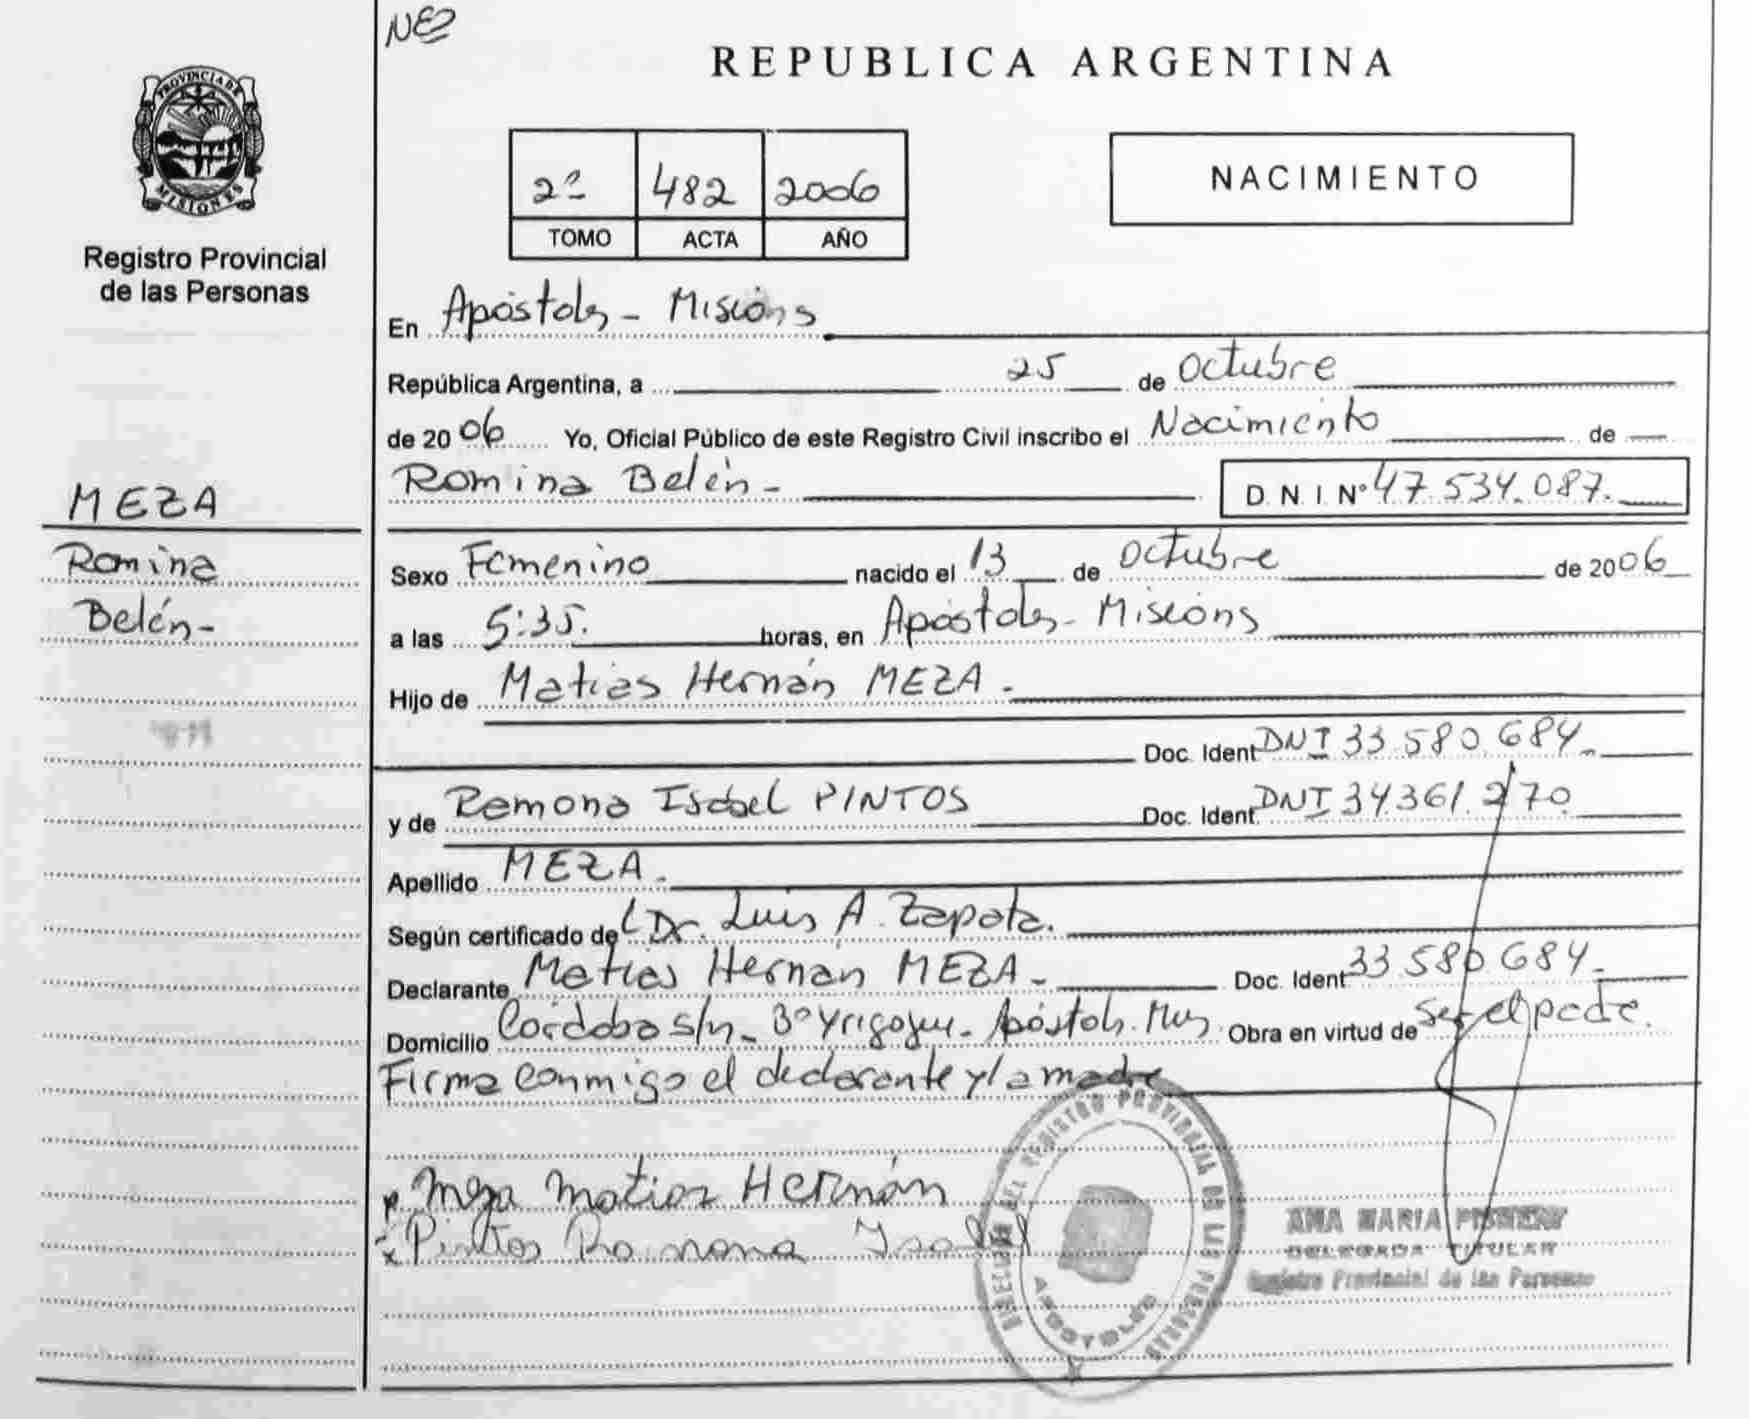 NE2
REPUBLICA ARGENTINA
PROVINCIA DE
MISIONES
Registro Provincial
de las Personas
2º 482 2006
TOMO ACTA AÑO
NACIMIENTO
En Apóstoles - Misiones
República Argentina, a 25 de octubre
de 2006 Yo, Oficial Público de este Registro Civil inscribo el Nacimiento de
Romina Belén - D. N. I. Nº 47.534.087.
MEZA
Romina
Belén-
Sexo Femenino nacido el 13 de octubre de 2006
a las 5:35. horas, en Apóstoles - Misiones
Hijo de Matias Hernán MEZA -
Doc. Ident DNI 33.580.684.
y de Ramona Isabel PINTOS Doc. Ident. DNI 34.361.270
Apellido MEZA.
Según certificado de Dr. Luis A. Zapata.
Declarante Matias Hernan MEZA - Doc. Ident 33.580.684.
Domicilio Córdoba s/n - Bº Yrigoyen - Apóstoles. Mnes. Obra en virtud de ser el padre.
Firma conmigo el declarante y la madre
Meza Matias Hernán
x Pintos Ramona Isabel
DEL REGISTRO PROVINCIAL DE LAS PERSONAS
APOSTOLES
ANA MARIA
DELEGADA TITULAR
Registro Provincial de las Personas